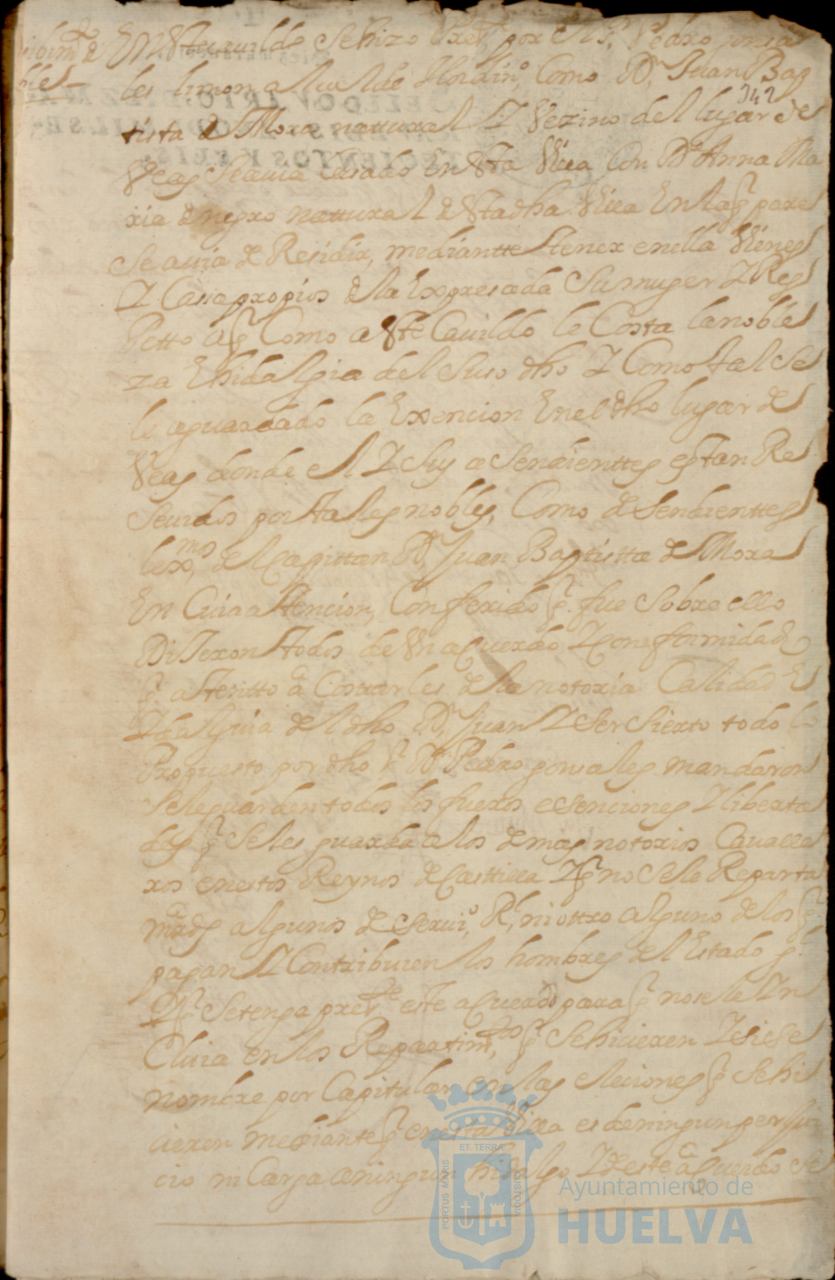 En este cavildo se hizo exs.n por el S.r Pedro gonsa
les limon alcalde Hordin.o Como D.n Juan Bap
342
tista de Mora nattural Y Vezino del lugar de
Veas se avia casado en esta Villa con D.a Anna Ma
ria de negro nattural de esta dha Villa En la q pares
se avia de Residir, mediantte tener en ella Vienes
Y Casa propios de la Expresada Su muger Y Res
Petto a q Como a este Cavildo le Costa la noble
za E hidalguia del suso dho Y Como tal se
le aguardado la Exencion En el dho lugar de
Veas donde el Y sus asendienttes estan Re
sevidos por tales nobles, Como desendienttes
lex.mo del Capittan D.n Juan Baptistta de Mora
En Cuia attencion, Conferido q fue sobre ello
Dixeron todos de Un acuerdo Y conformidad
q attentto a Costarles de la notoria Calidad E
Ydalguia del dho D.n Juan Y ser sierto todo lo
Propuesto por dho S.r D.n Pedro gonsales mandaron
se le guarden todos los fueros esenciones Y liberta
des q se les guarda a los demas notorios Cavalle
ros en estos Reynos de Casttilla Y q no se le Reparta
mrds algunos de servi.o R.l ni ottro alguno de los q
pagan Y Contribuien los hombres del Estado g.l
Y q se tenga pres.te este acuerdo para q no se le In
Cluia en los Repartim.tos q se hicieren Y se le
nombre por Capitular en las elesiones q se hi
cieren mediante q en esta Villa es de ningun perjui
cio ni Carga a ningun hidalgo, Y de este acuerdo se
ET TERRA
PORTUS MARIS
CUSTODIA
Ayuntamiento de
HUELVA